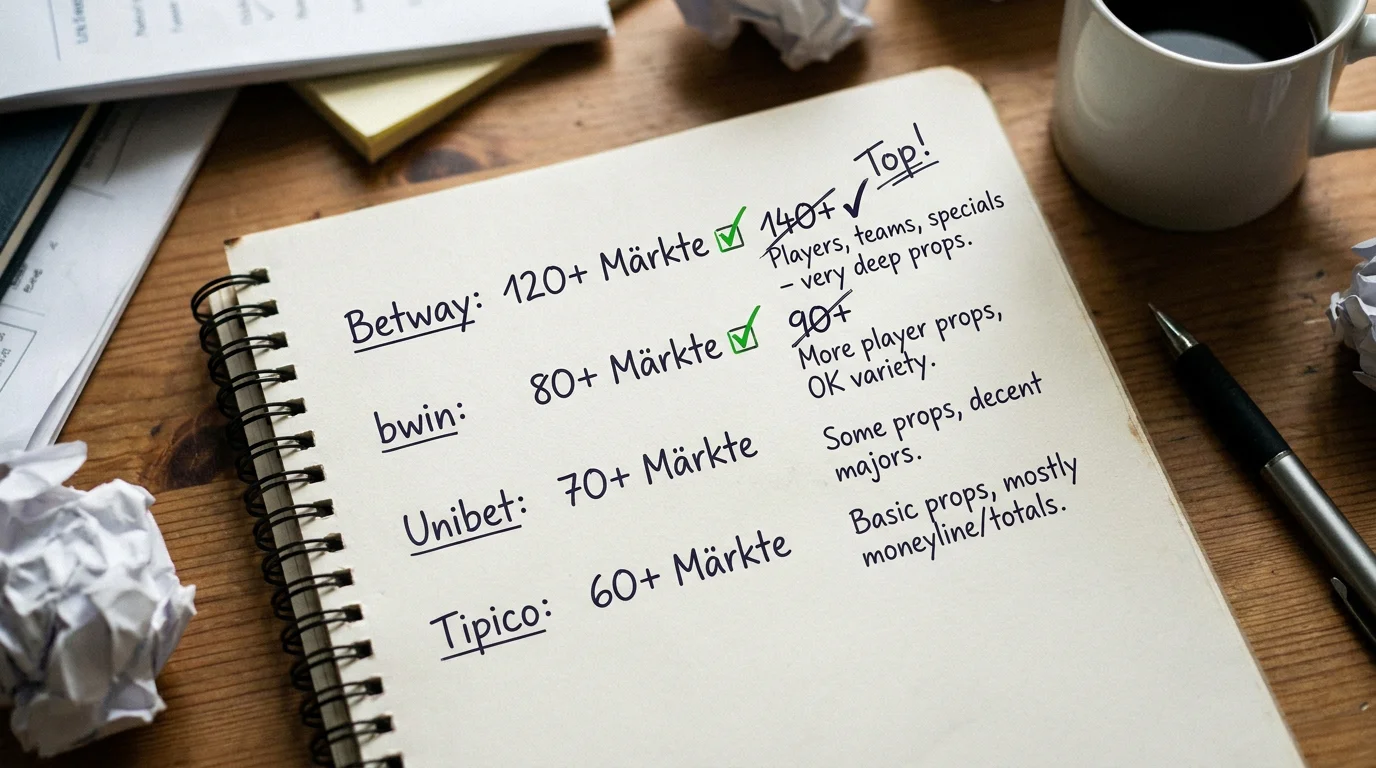 Top!
Betway: 120+ Märkte ✅ 140+ ✓
Players, teams, specials
– very deep props.
bwin: 80+ Märkte ✅ 90+
More player props,
OK variety.
Unibet: 70+ Märkte
Some props, decent
majors.
Tipico: 60+ Märkte
Basic props, mostly
moneyline/totals.